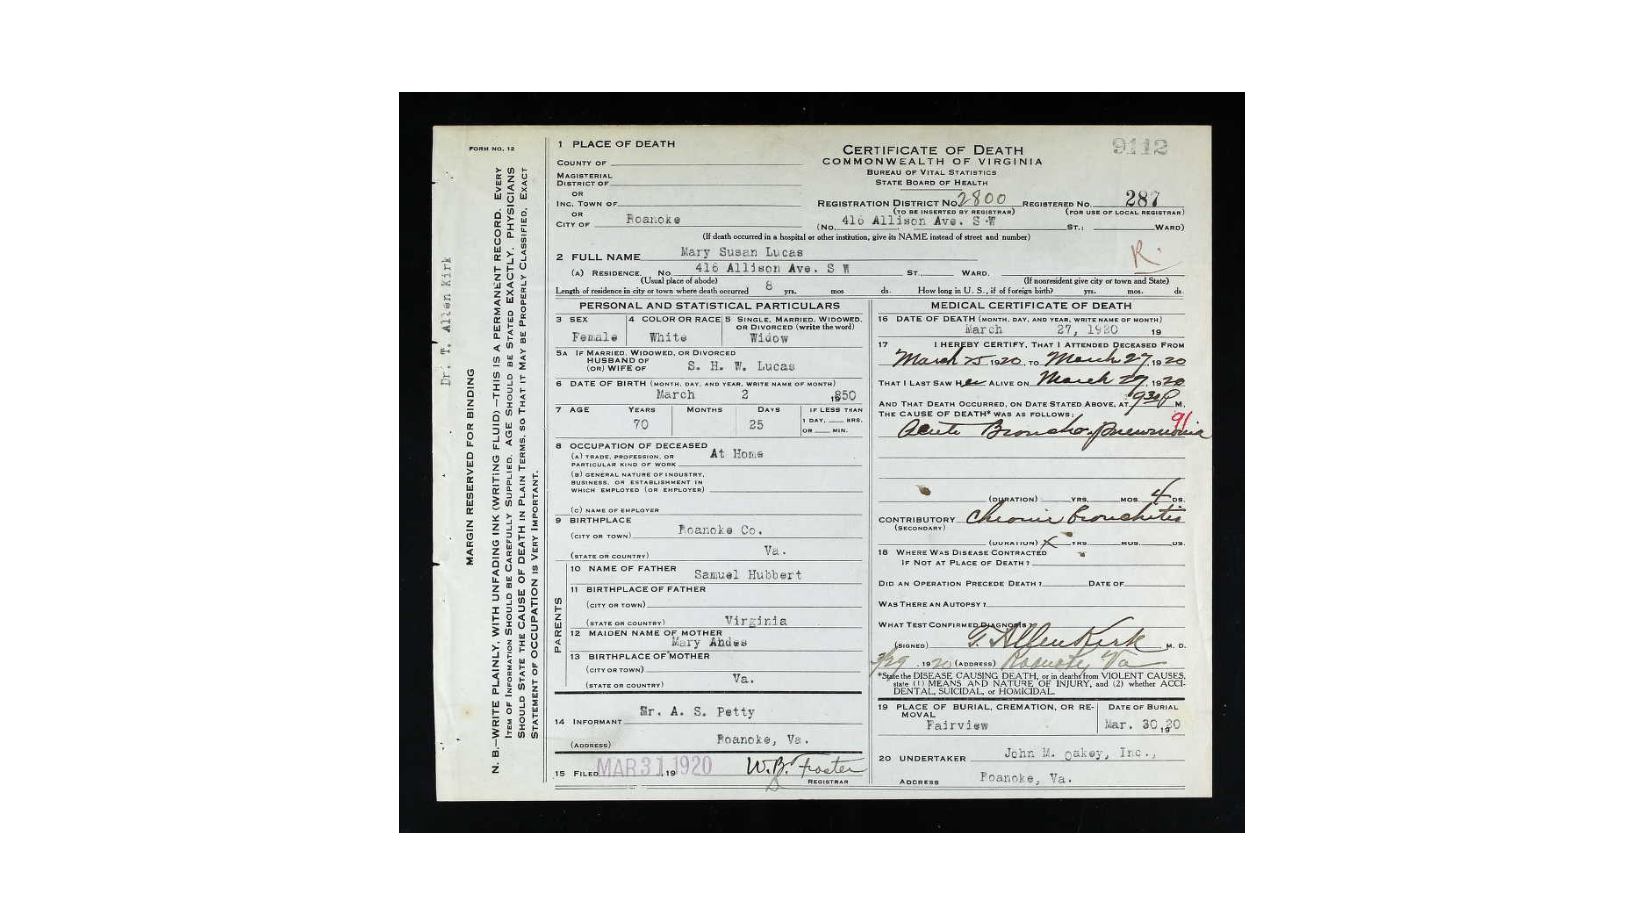 FORM NO. 12
MARGIN RESERVED FOR BINDING
N. B.—WRITE PLAINLY, WITH UNFADING INK (WRITING FLUID)—THIS IS A PERMANENT RECORD. EVERY
ITEM OF INFORMATION SHOULD BE CAREFULLY SUPPLIED. AGE SHOULD BE STATED EXACTLY. PHYSICIANS
SHOULD STATE THE CAUSE OF DEATH IN PLAIN TERMS, SO THAT IT MAY BE PROPERLY CLASSIFIED. EXACT
STATEMENT OF OCCUPATION IS VERY IMPORTANT.
Dr. T. Allen Kirk
1 PLACE OF DEATH
COUNTY OF
MAGISTERIAL
DISTRICT OF
OR
INC. TOWN OF
OR
CITY OF Roanoke
CERTIFICATE OF DEATH
COMMONWEALTH OF VIRGINIA
BUREAU OF VITAL STATISTICS
STATE BOARD OF HEALTH
9112
REGISTRATION DISTRICT NO. 2800 REGISTERED NO. 287
(TO BE INSERTED BY REGISTRAR) (FOR USE OF LOCAL REGISTRAR)
(NO. 416 Allison Ave. S W ST.; WARD)
(If death occurred in a hospital or other institution, give its NAME instead of street and number)
2 FULL NAME Mary Susan Lucas
R.
(A) RESIDENCE. NO. 416 Allison Ave. S W ST. WARD.
(Usual place of abode) (If nonresident give city or town and State)
Length of residence in city or town where death occurred 8 yrs. mos ds. How long in U. S., if of foreign birth? yrs. mos. ds.
PERSONAL AND STATISTICAL PARTICULARS
3 SEX 4 COLOR OR RACE 5 SINGLE, MARRIED, WIDOWED,
OR DIVORCED (write the word)
Female White Widow
5A IF MARRIED, WIDOWED, OR DIVORCED
HUSBAND OF
(OR) WIFE OF S. H. W. Lucas
6 DATE OF BIRTH (MONTH, DAY, AND YEAR, WRITE NAME OF MONTH)
March 2 1850
7 AGE YEARS MONTHS DAYS IF LESS THAN
1 DAY, HRS.
OR MIN.
70 25
8 OCCUPATION OF DECEASED
(A) TRADE, PROFESSION, OR
PARTICULAR KIND OF WORK At Home
(B) GENERAL NATURE OF INDUSTRY,
BUSINESS, OR ESTABLISHMENT IN
WHICH EMPLOYED (OR EMPLOYER)
(C) NAME OF EMPLOYER
9 BIRTHPLACE
(CITY OR TOWN) Roanoke Co.
(STATE OR COUNTRY) Va.
PARENTS
10 NAME OF FATHER Samuel Hubbert
11 BIRTHPLACE OF FATHER
(CITY OR TOWN)
(STATE OR COUNTRY) Virginia
12 MAIDEN NAME OF MOTHER
Mary Andes
13 BIRTHPLACE OF MOTHER
(CITY OR TOWN)
(STATE OR COUNTRY) Va.
14 INFORMANT Mr. A. S. Petty
(ADDRESS) Roanoke, Va.
15 FILED MAR 31 1920, 19 W. B. Foster
REGISTRAR
MEDICAL CERTIFICATE OF DEATH
16 DATE OF DEATH (MONTH, DAY, AND YEAR, WRITE NAME OF MONTH)
March 27, 1920 19
17 I HEREBY CERTIFY, THAT I ATTENDED DECEASED FROM
March 25 1920, TO March 27, 1920
THAT I LAST SAW Her ALIVE ON March 27, 1920
AND THAT DEATH OCCURRED, ON DATE STATED ABOVE, AT 930 P M.
THE CAUSE OF DEATH* WAS AS FOLLOWS:
91
Acute Broncho-pneumonia
(DURATION) YRS. MOS. 4 DS.
CONTRIBUTORY Chronic bronchitis
(SECONDARY)
(DURATION) X YRS. MOS. DS.
18 WHERE WAS DISEASE CONTRACTED
IF NOT AT PLACE OF DEATH?
DID AN OPERATION PRECEDE DEATH? DATE OF
WAS THERE AN AUTOPSY?
WHAT TEST CONFIRMED DIAGNOSIS?
(SIGNED) T. Allen Kirk M. D.
3/29, 1920 (ADDRESS) Roanoke, Va
*State the DISEASE CAUSING DEATH, or in deaths from VIOLENT CAUSES,
state (1) MEANS AND NATURE OF INJURY, and (2) whether ACCI-
DENTAL, SUICIDAL, or HOMICIDAL.
19 PLACE OF BURIAL, CREMATION, OR RE-
MOVAL DATE OF BURIAL
Fairview Mar. 30, 20
19
20 UNDERTAKER John M. Oakey, Inc.,
ADDRESS Roanoke, Va.